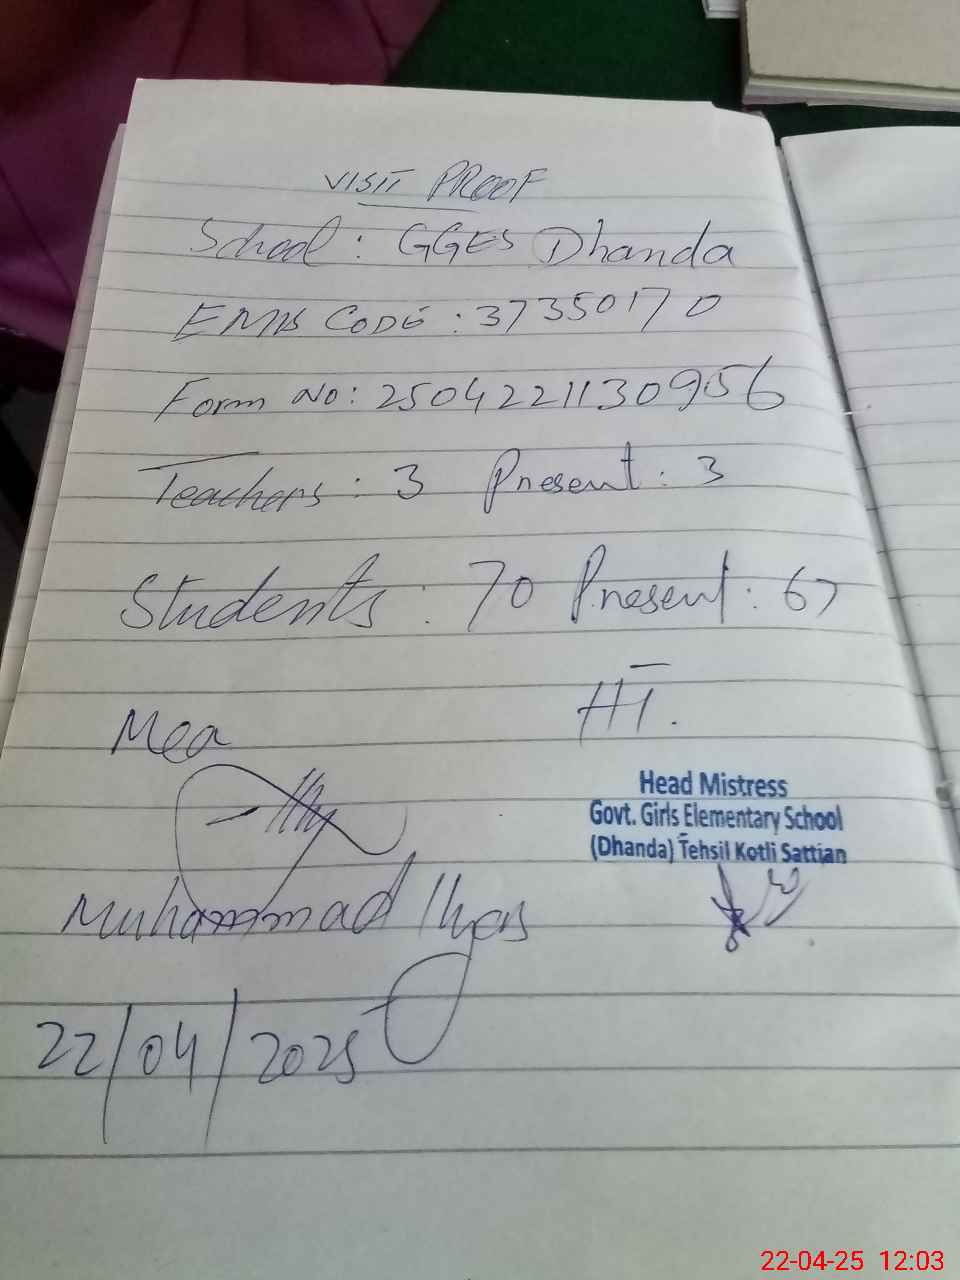 VISIT PROOF
School: GGES Dhanda
EMIS CODE: 37350170
Form No: 2504221130956
Teachers: 3 Present: 3
Students: 70 Present: 67
Mea
HT.
Head Mistress
Govt. Girls Elementary School
(Dhanda) Tehsil Kotli Sattian
Muhammad Ilyas
22/04/2025
22-04-25 12:03